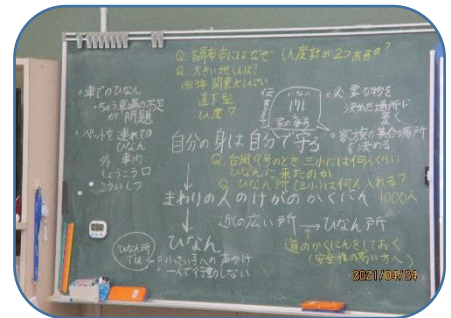 Q. 調布市にはなぜ震度計が2つある?
Q. 大きい地しんは?
1923年 関東大しんさい
直下型
しん度7
・車でのひなん
ちゅう車場の不足が
問題
・ペットを連れての
ひなん
外 車内
しょうこう口
こういしつ
171
・必要な物を
決めた場所に
置く
・家族の集合場所
を決める
自分の身は自分で守る
Q. 台風19号のとき三小には何人くらい
ひなんに来たのか
Q. ひなん所(三小)は何人入れる?
1000人
まわりの人のけがのかくにん
近くの広い所 → ひなん所
道のかくにんをしておく
(安全性の高い方へ)
ひなん
ひなん所
では
・小さい子への声かけ
・一人で行動しない
2021/04/24